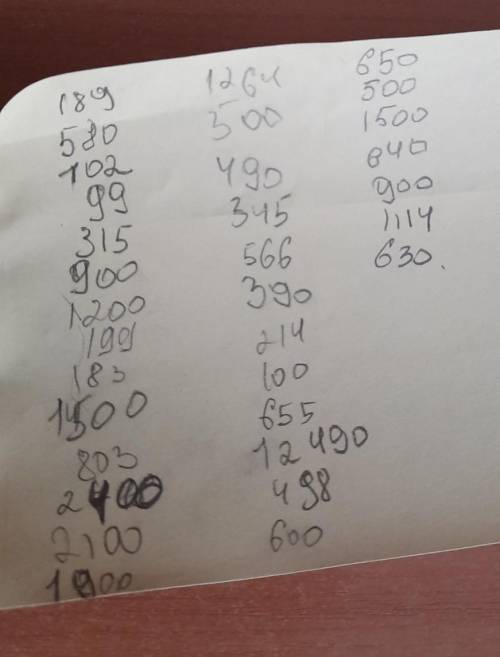 189
580
102
99
315
900
1200
199
183
1500
803
2400
2100
1900
1264
500
490
345
566
390
214
100
655
12490
498
600
650
500
1500
840
900
1114
630.